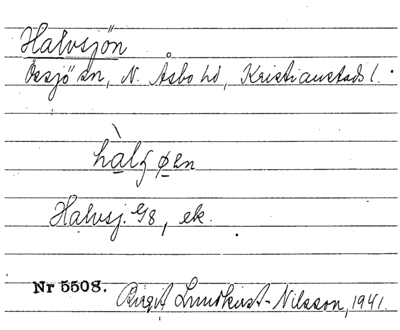 Halvsjön
Össjö sn, N. Åsbo hd, Kristianstads l.
hàlʃøen
Halvsj. G8, ek.
Nr 5508. Birgit Lundkvist-Nilsson, 1941.